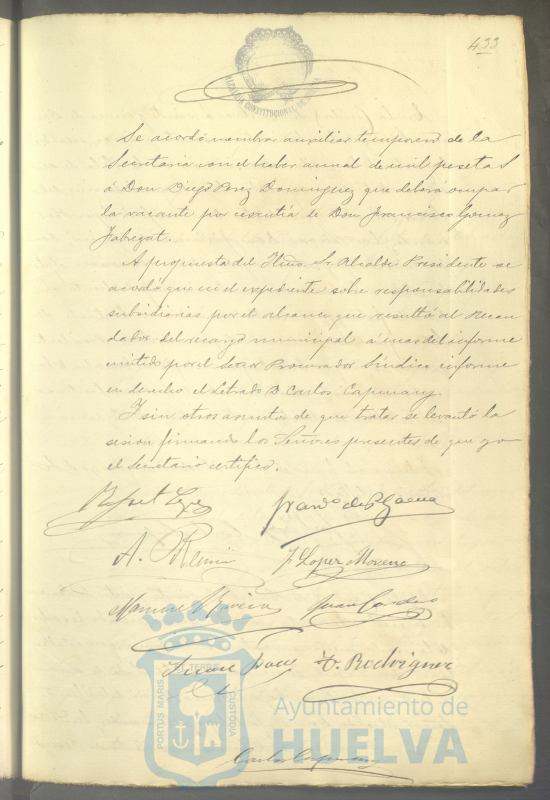 433
ALCALDIA CONSTITUCIONAL DE HUELVA
Se acordó nombrar auxiliar temporero de la
Secretaria con el haber anual de mil pesetas
á Don Diego Perez Dominguez que deberá ocupar
la vacante por cesantía de Don Francisco Gomez
Fabregat.
A propuesta del Iltmo. Sr. Alcalde Presidente se
acordó que en el expediente sobre responsabilidades
subsidiarias por el alcance que resultó al Recau-
dador del recargo municipal á mas del informe
emitido por el Señor Procurador Síndico informe
en derecho el Letrado D. Carlos Capmany.
Y sin otros asuntos de que tratar se levantó la
sesion firmando los Señores presentes de que yo
el Secretario certifico.
Rafael Lopez
A.
J. Lopez Moreno
Manuel
Juan Cordero
T. Rodriguez
Carlos Capmany
PORTUS MARIS ET TERRE CUSTODIA
Ayuntamiento de
HUELVA